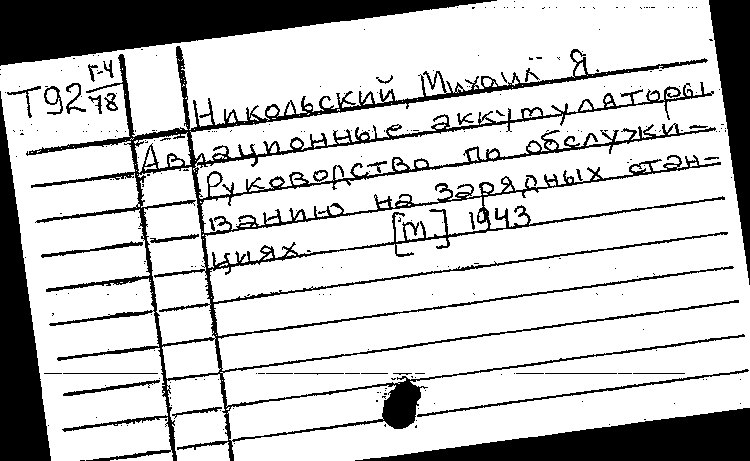 Т92 Г-4/78
Никольский, Михаил Я.
Авиационные аккумуляторы
Руководство по обслужи=
ванию на зарядных стан=
циях. [М.] 1943